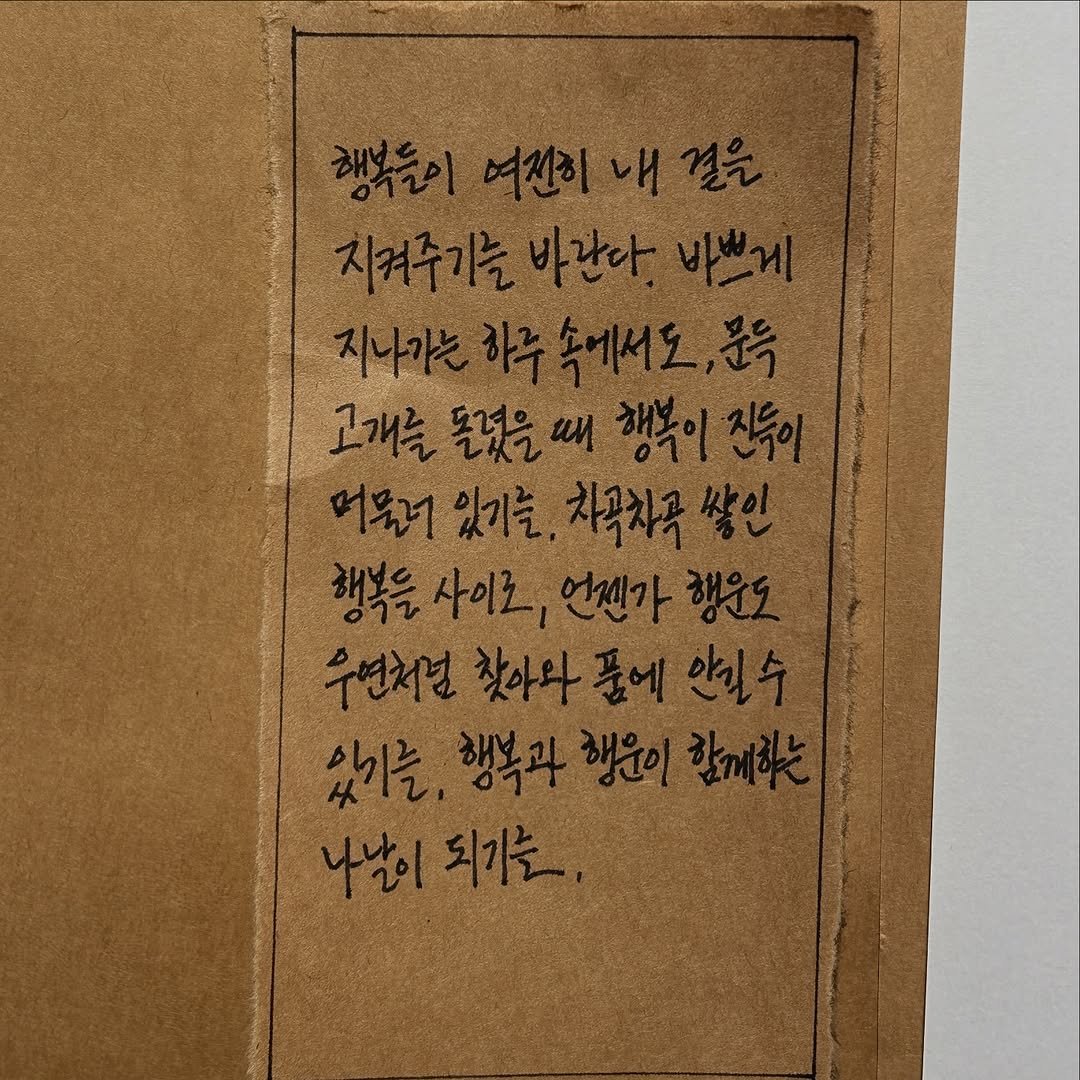 행복들이 여전히 내 곁을
지켜주기를 바란다. 바쁘게
지나가는 하루 속에서도, 문득
고개를 돌렸을 때 행복이 진득이
머물러 있기를. 차곡차곡 쌓인
행복들 사이로, 언젠가 행운도
우연처럼 찾아와 품에 안길 수
있기를. 행복과 행운이 함께하는
나날이 되기를.